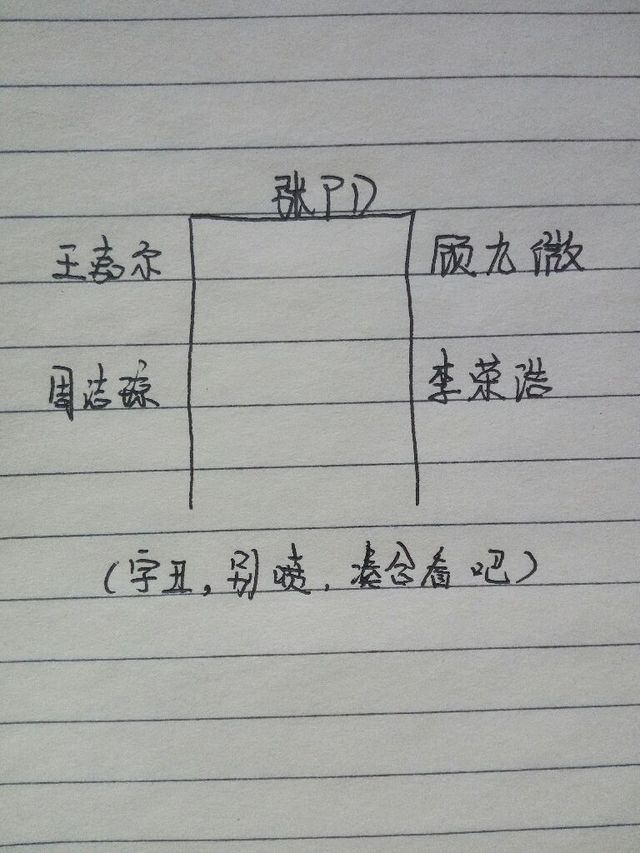 张PD
王嘉尔 顾九微
周洁琼 李荣浩
(字丑,别喷,凑合看吧)